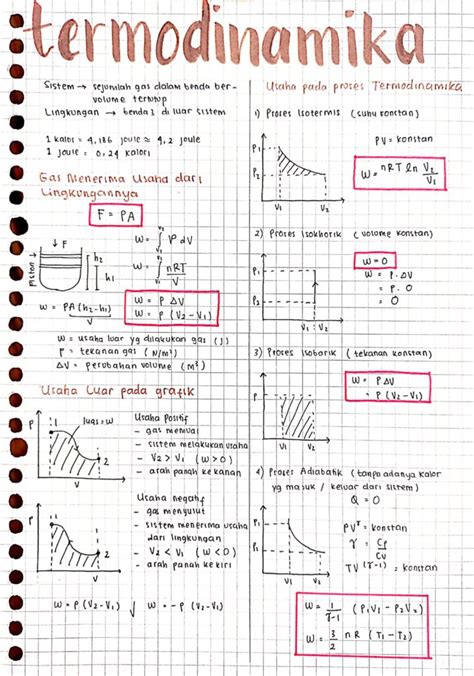 termodinamika
Sistem → sejumlah gas dalam benda ber-
volume tertutup
Lingkungan → benda2 di luar sistem
1 kalori = 4,186 joule ≈ 4,2 joule
1 joule = 0,24 kalori
Gas Menerima Usaha dari
Lingkungannya
F = PA
↓ F
piston
h2
h1
W = ∫ P dV
V2
V1
W = ∫ nRT/V
V2
V1
W = PA (h2-h1)
V
W = P ΔV
W = P (V2 - V1)
W = usaha luar yg dilakukan gas (J)
P = tekanan gas (N/m²)
ΔV = perubahan volume (m³)
Usaha Luar pada grafik
P
1
luas = W
2
V
Usaha Positif
- gas memuai
- sistem melakukan usaha
- V2 > V1 (W > 0)
- arah panah ke kanan
P
1
2
V
Usaha negatif
- gas menyusut
- sistem menerima usaha
dari lingkungan
- V2 < V1 (W < 0)
- arah panah ke kiri
W = P (V2 - V1) ↓ W = - P (V2 - V1)
Usaha pada proses Termodinamika
1) Proses Isotermis (suhu konstan)
P1
P2
V1 V2
PV = konstan
W = nRT ln V2/V1
2) Proses Isokhorik (volume konstan)
P1
P2
V1 : V2
W = 0
W = P . ΔV
= P . 0
= 0
3) Proses Isobarik (tekanan konstan)
P
V1 V2
W = P ΔV
= P (V2 - V1)
4) Proses Adiabatik (tanpa adanya kalor
yg masuk / keluar dari sistem)
Q = 0
P1
P2
V1 V2
PV^γ = konstan
γ = Cp/Cv
TV^(γ-1) = konstan
W = 1/γ-1 (P1V1 - P2V2)
W = 3/2 nR (T1 - T2)